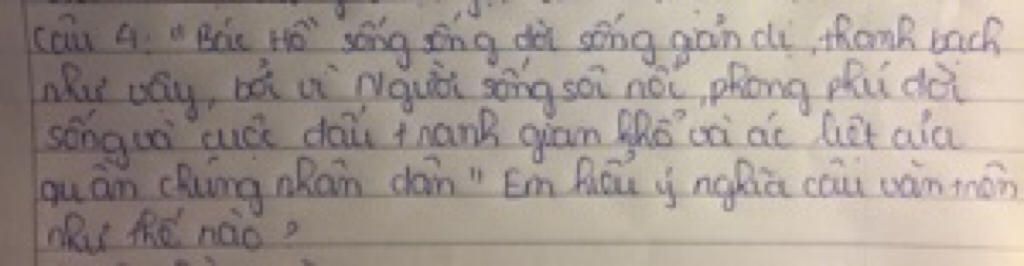 Câu 4: "Bác Hồ sống sống đời sống giản dị, thanh bạch
như vậy, bởi vì Người sống sôi nổi, phong phú đời
sống và cuộc đấu tranh gian khổ và ác liệt của
quần chúng nhân dân" Em hiểu ý nghĩa câu văn trên
như thế nào?